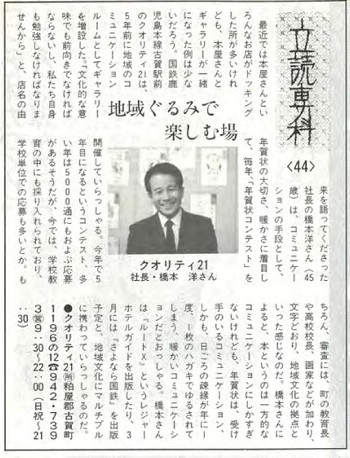 立読専科
〈44〉
地域ぐるみで
楽しむ場
最近では本屋さんとい
ろんなお店がドッキング
した所が多いけれ
ども、本屋さんと
ギャラリーが一緒
になった例は少な
いだろう。国鉄鹿
児島本線古賀駅前
のクオリティ21は、
5年前に地域のコ
ミュニケーション
ルームとしてギャラリー
を増設した。“文化的な意
味でも前向きでなければ
ならないし、私たち自身
も勉強しなければなりま
せんから”と、店名の由
来を語ってくださった
社長の橋本洋さん（45
歳）は、コミュニケー
ションの手段として、
年賀状の大切さ、暖かさに着目し
て、毎年、“年賀状コンテスト”を
開催していらっしゃる。今年で5
年目になるというコンテスト、多
い年は5000通にもおよぶ応募
があるそうだが、今では、学校教
育の中にも採り入れられており、
学校単位での応募も多いとか。も
クオリティ21
社長・橋本　洋さん
ちろん、審査には、町の教育長
や高校校長、画家などが加わり、
文字どおり、地域文化の拠点と
いった感じなのだ。橋本さんに
よると、本というのは一方的な
コミュニケーションにしかすぎ
ないけれども、年賀状は、受け
手のいるコミュニケーション、
しかも、日ごろの疎縁が年に一
度、1枚のハガキでゆるされて
しまう、暖かいコミュニケーシ
ョンだとおっしゃる。橋本さん
は『ルートX』というレジャー
ホテルガイドを出版したり、3
月には『さよなら国鉄』を出版
予定と、地域文化にマルチプル
に携わっていらっしゃるのだ。
●クオリティ21 粕屋郡古賀町
1196の12☎942・739
3 9:30〜22:00（日祝〜21
:30）